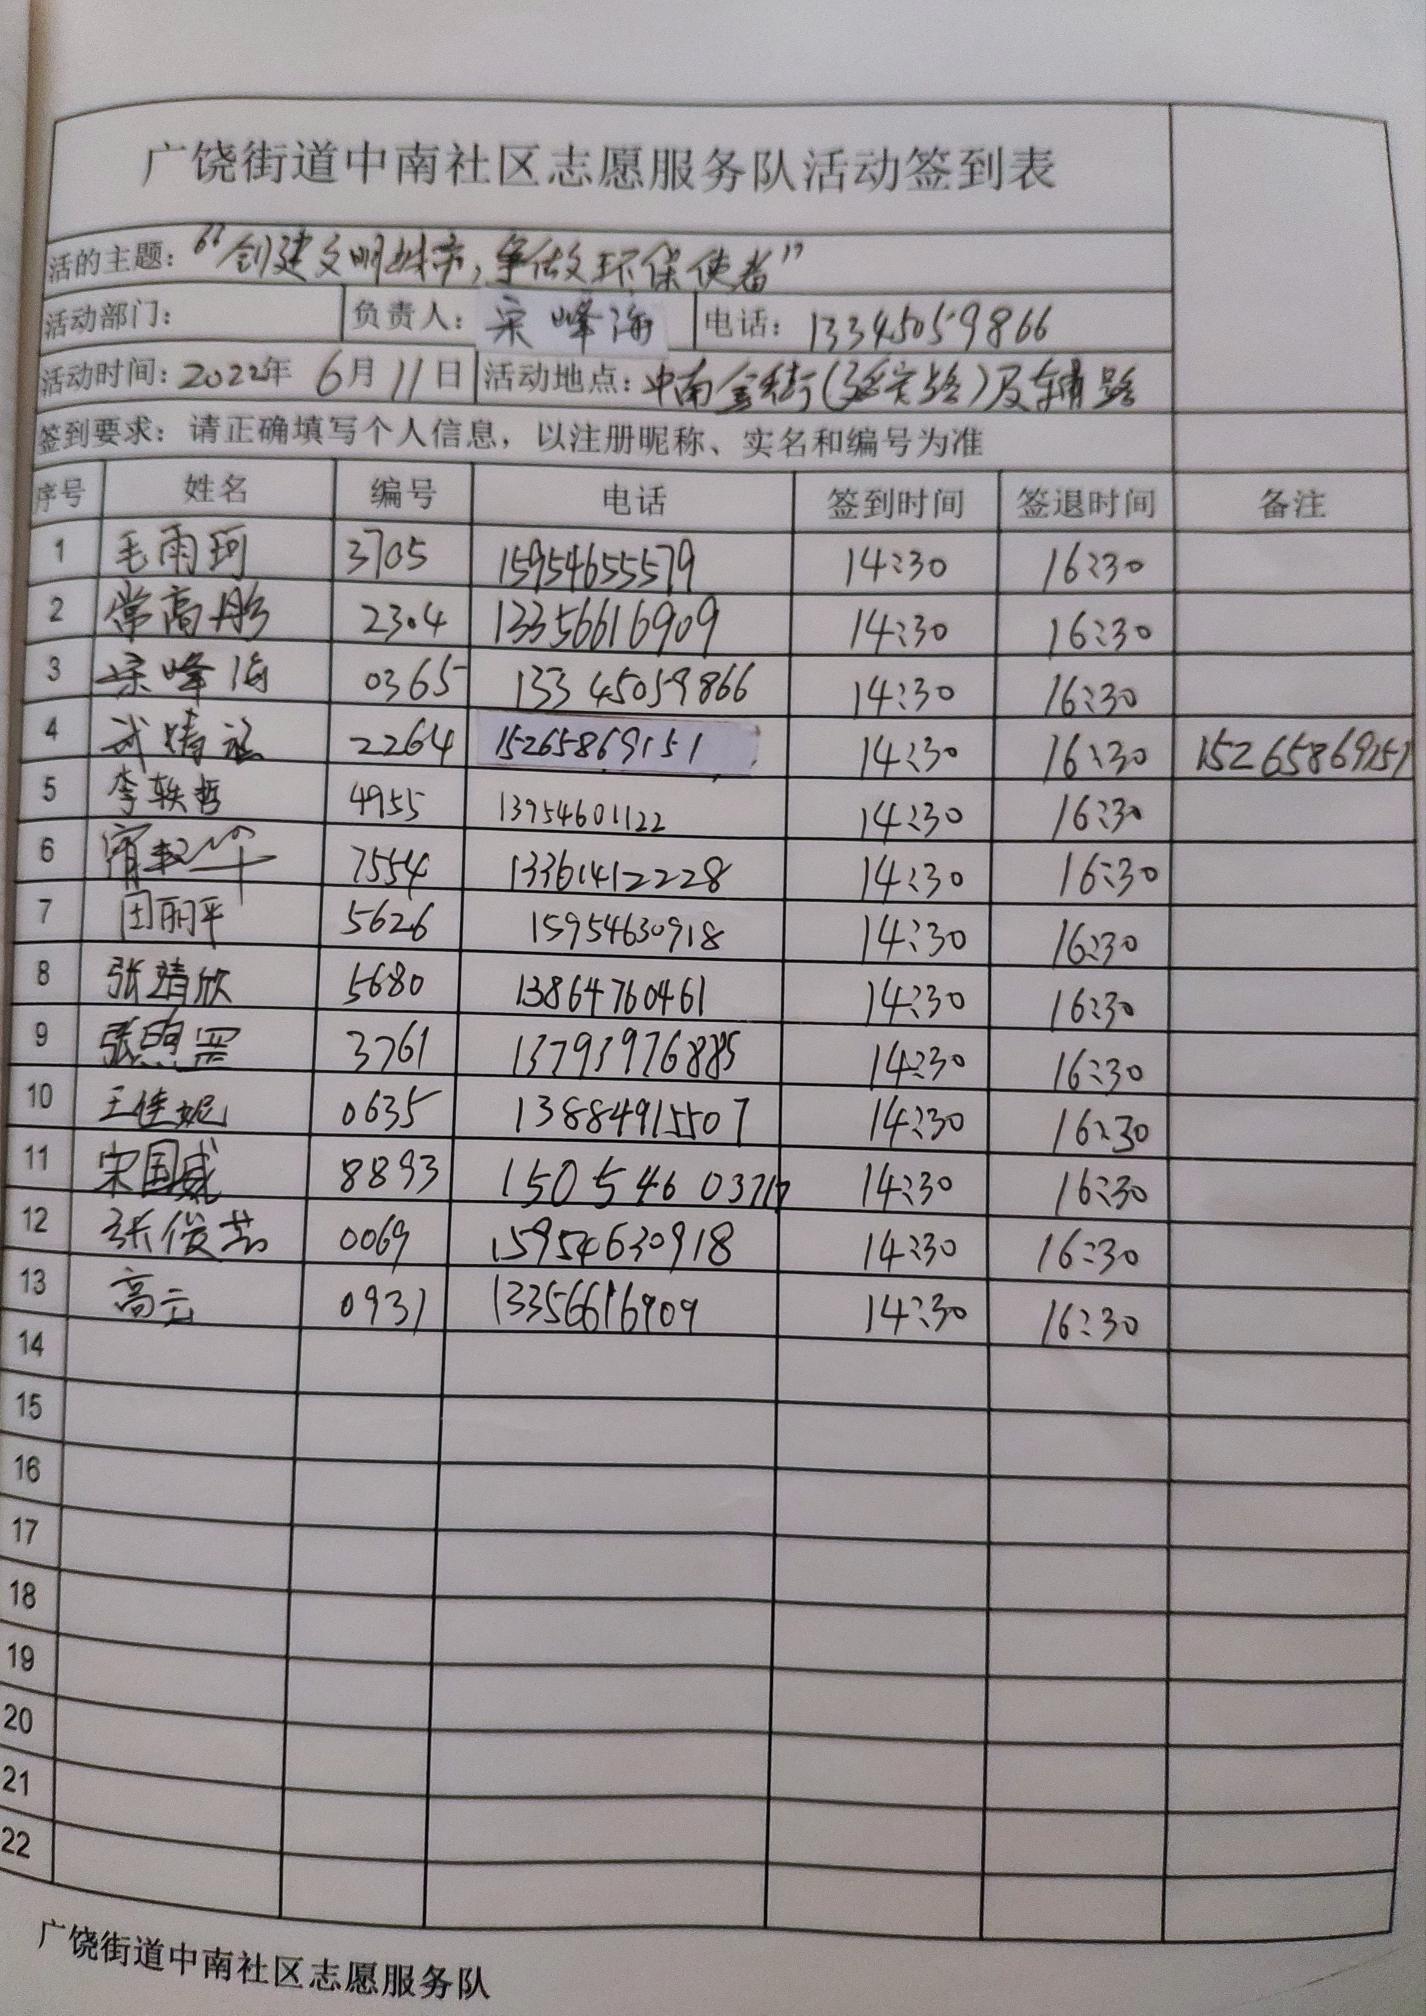 广饶街道中南社区志愿服务队活动签到表
活的主题：“创建文明城市，争做文环保使者”
活动部门： 负责人：宋峰海 电话：13345059866
活动时间：2022年 6月11日 活动地点：中南金街(延寿路)及辅路
签到要求：请正确填写个人信息，以注册昵称、实名和编号为准
序号 姓名 编号 电话 签到时间 签退时间 备注
1 毛雨珂 3705 15954655579 14:30 16:30
2 常高彤 2304 13356616909 14:30 16:30
3 宋峰海 0365 13345059866 14:30 16:30
4 武婧 2264 15265869151 14:30 16:30 15265869151
5 李轶哲 4955 13954601122 14:30 16:30
6 7554 13361412228 14:30 16:30
7 田丽平 5626 15954630918 14:30 16:30
8 张靖欣 5680 13864760461 14:30 16:30
9 张 3761 14:30 16:30
10 王佳妮 0635 13884915507 14:30 16:30
11 宋国威 8893 14:30 16:30
12 张俊 0069 15954630918 14:30 16:30
13 高云 0931 13356616909 14:30 16:30
14
15
16
17
18
19
20
21
22
广饶街道中南社区志愿服务队